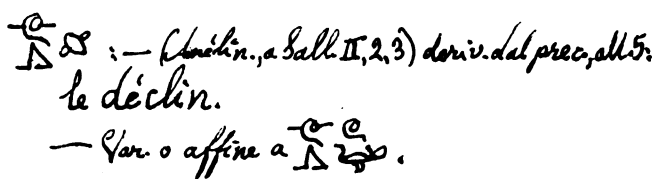 : — (Amélin., a Sall. II, 2, 3) deriv. dal prec., all. 5:
le déclin.
— Var. o affine a .